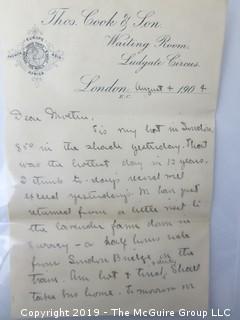 Thos. Cook & Son.
Waiting Room,
Ludgate Circus,
EUROPE
AFRICA
London, August 4 1904
E.C.
Dear Mother
'Tis very hot in London
850 in the shade yesterday. That
was the hottest day in 12 years.
I think to-day's record will
exceed yesterday's. I've just
returned from a little visit to
the lavender farm down in
Surrey – a half hour's ride
from London Bridge, on the
train. Am hot & tired, & dusty. Shall
take bus home. to-morrow we
Copyright 2019 - The McGuire Group